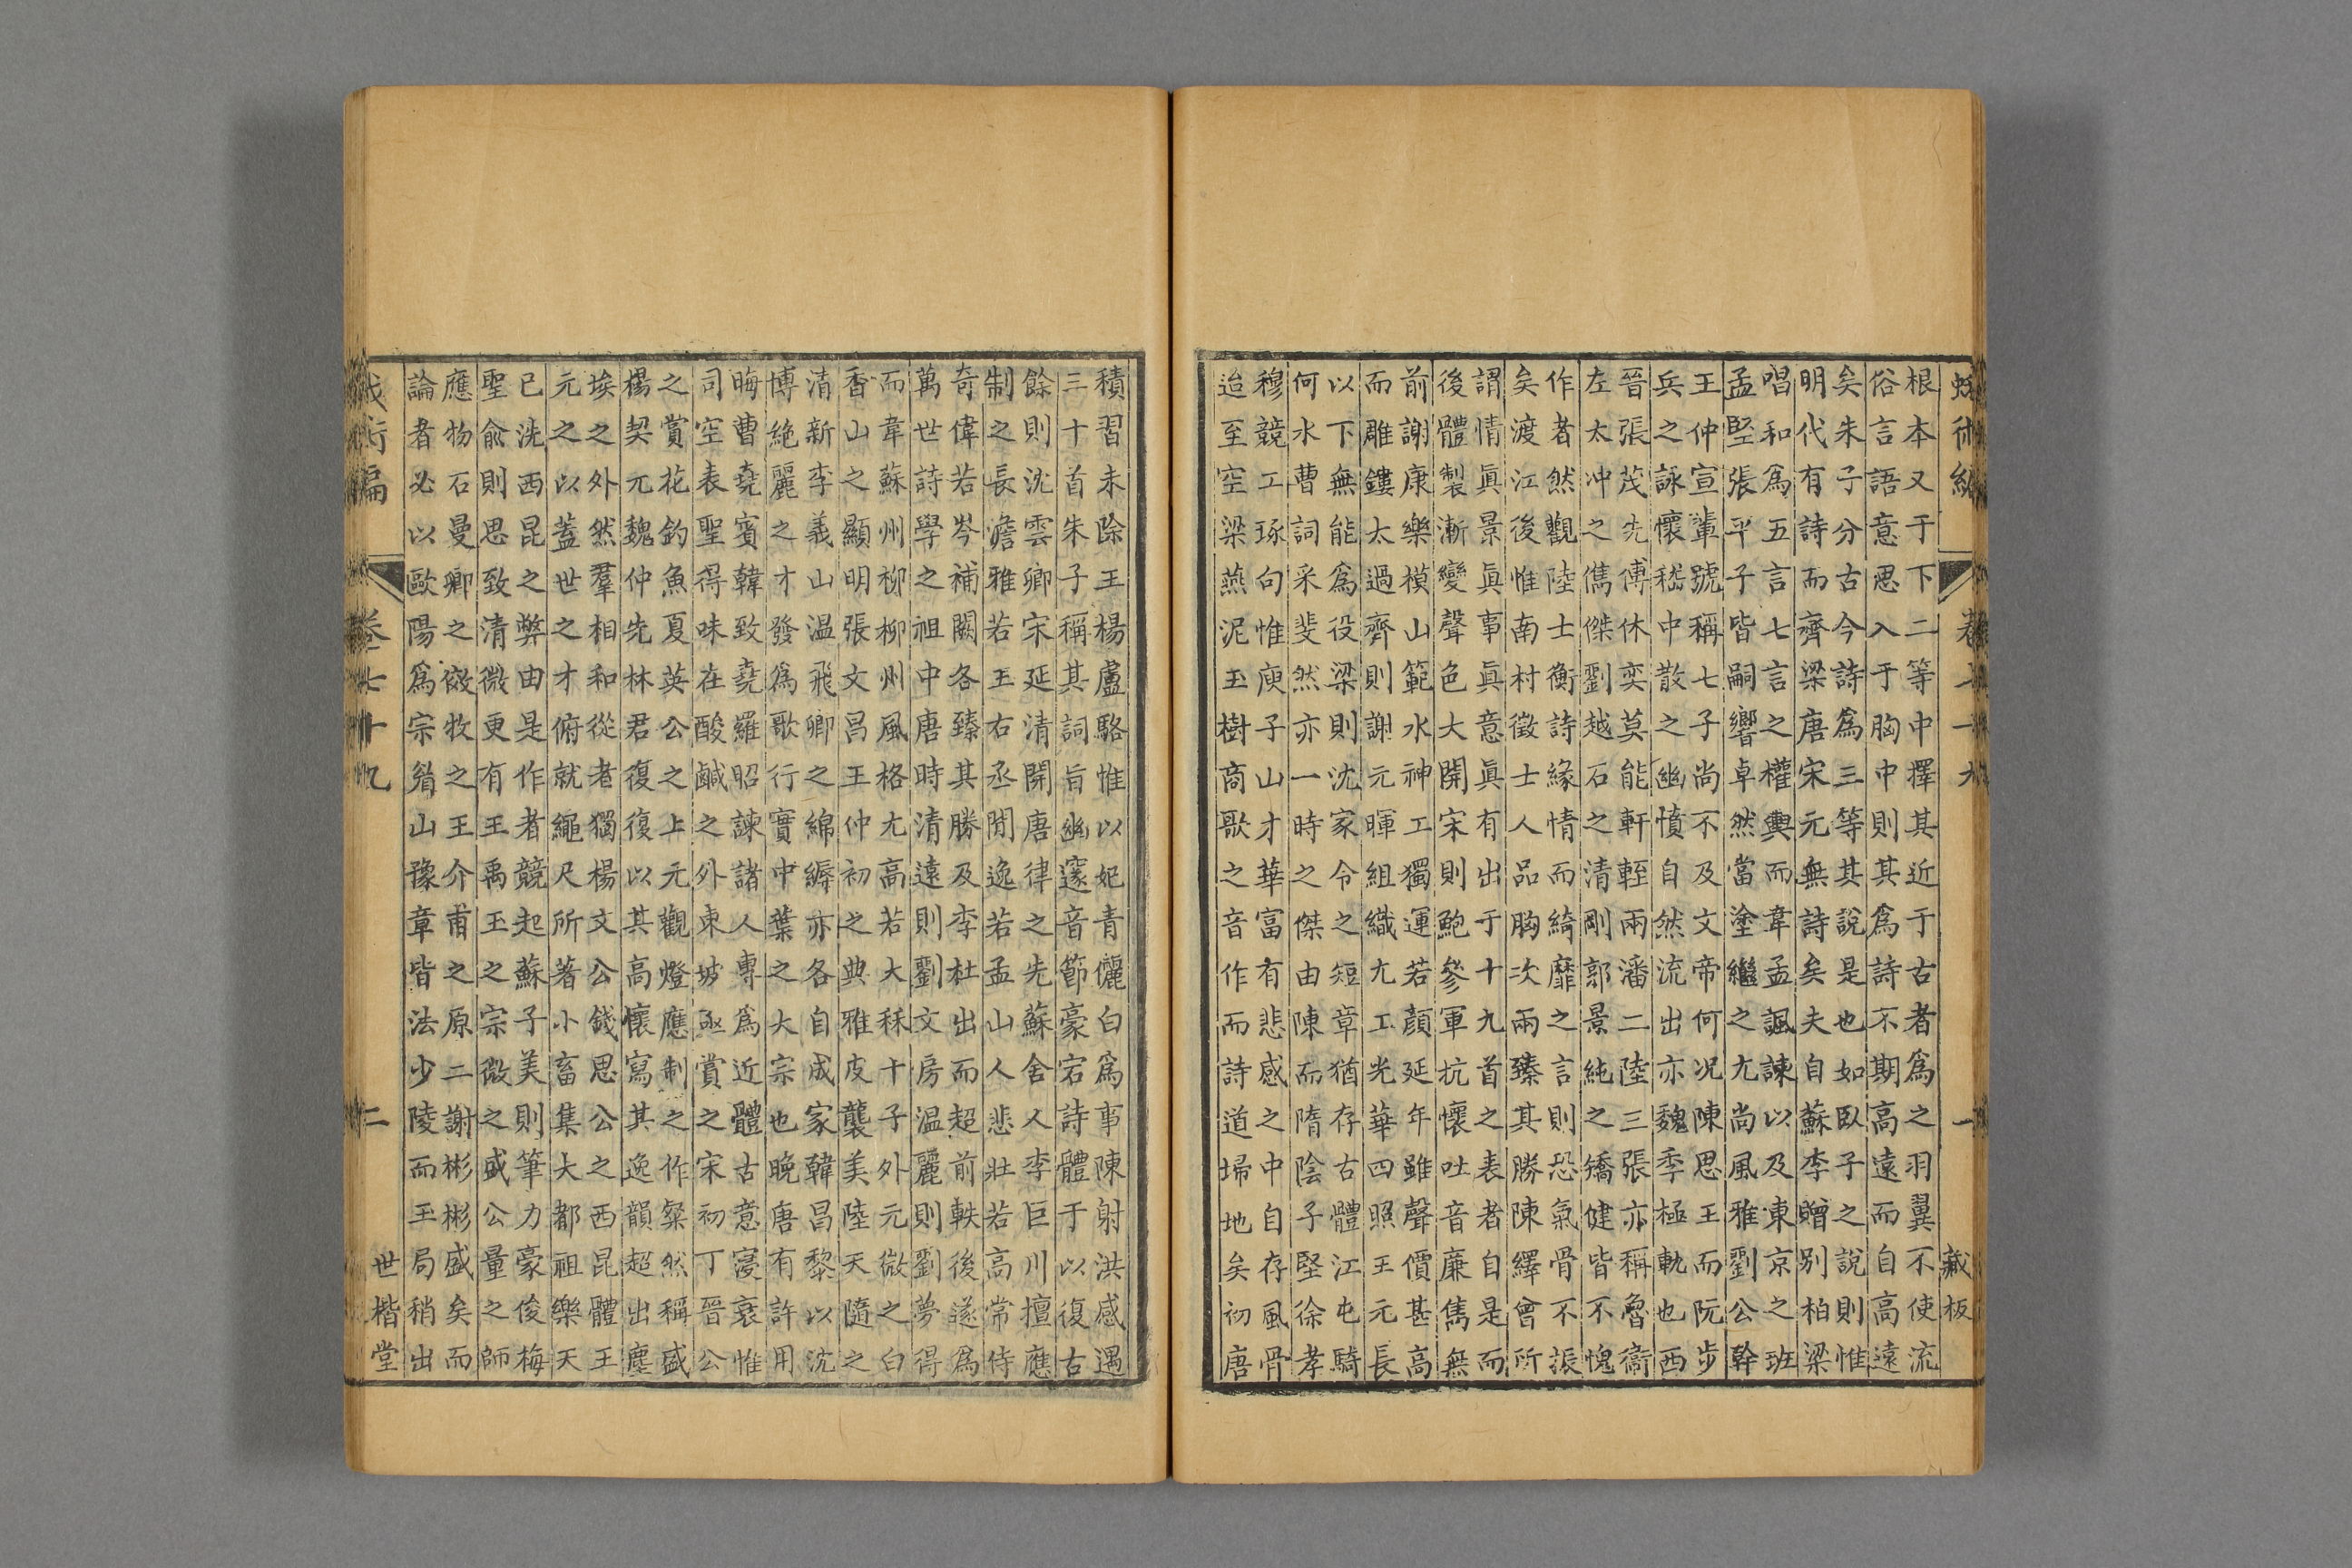 蛾術編 卷七十九 一 藏板
根本又于下二等中擇其近于古者爲之羽翼不使流
俗言語意思入于胸中則其爲詩不期高遠而自高遠
矣朱子分古今詩爲三等其說是也如臥子之說則惟
明代有詩而齊梁唐宋元無詩矣夫自蘇李贈别柏梁
唱和爲五言七言之權輿而韋孟諷諫以及東京之班
孟堅張平子皆嗣響卓然當塗繼之尤尚風雅劉公幹
王仲宣輩號稱七子尚不及文帝何况陳思王而阮步
兵之詠懷嵇中散之幽憤自然流出亦魏季極軌也西
晉張茂先傅休奕莫能軒輊兩潘二陸三張亦稱魯衞
左太冲之儁傑劉越石之清剛郭景純之矯健皆不愧
作者然觀陸士衡詩緣情而綺靡之言則恐氣骨不振
矣渡江後惟南村徵士人品胸次兩臻其勝陳繹曾所
謂情眞景眞事眞意眞有出于十九首之表者自是而
後體製漸變聲色大開宋則鮑參軍抗懷吐音廉雋無
前謝康樂模山範水神工獨運若顔延年雖聲價甚高
而雕鏤太過齊則謝元暉組織尤工光華四照王元長
以下無能爲役梁則沈家令之短章猶存古體江屯騎
何水曹詞采斐然亦一時之傑由陳而隋陰子堅徐孝
穆競工琢句惟庾子山才華富有悲感之中自存風骨
迨至空梁燕泥玉樹商歌之音作而詩道埽地矣初唐
積習未除王楊盧駱惟以妃青儷白爲事陳射洪感遇
三十首朱子稱其詞旨幽邃音節豪宕詩體于以復古
餘則沈雲卿宋延清開唐律之先蘇舍人李巨川擅應
制之長澹雅若王右丞閒逸若孟山人悲壯若高常侍
奇偉若岑補闕各臻其勝及李杜出而超前軼後遂爲
萬世詩學之祖中唐時清遠則劉文房温麗則劉夢得
而韋蘇州柳柳州風格尤高若大秝十子外元微之白
香山之顯明張文昌王仲初之典雅皮襲美陸天隨之
清新李義山温飛卿之綿縟亦各自成家韓昌黎以沈
博絶麗之才發爲歌行實中葉之大宗也晚唐有許用
晦曹堯賓韓致堯羅昭諫諸人專爲近體古意寖衰惟
司空表聖得味在酸鹹之外東坡亟賞之宋初丁晉公
之賞花釣魚夏英公之上元觀燈應制之作粲然稱盛
楊契元魏仲先林君復復以其高懷寫其逸韻超出塵
埃之外然羣相和從老獨楊文公錢思公之西昆體王
元之以蓋世之才俯就繩尺所著小畜集大都祖樂天
已洗西昆之弊由是作者競起蘇子美則筆力豪俊梅
聖俞則思致清微更有王禹玉之宗微之盛公量之師
應物石曼卿之俶牧之王介甫之原二謝彬彬盛矣而
論者必以歐陽爲宗眉山豫章皆法少陵而王局稍出
蛾術編 卷七十九 二 世楷堂